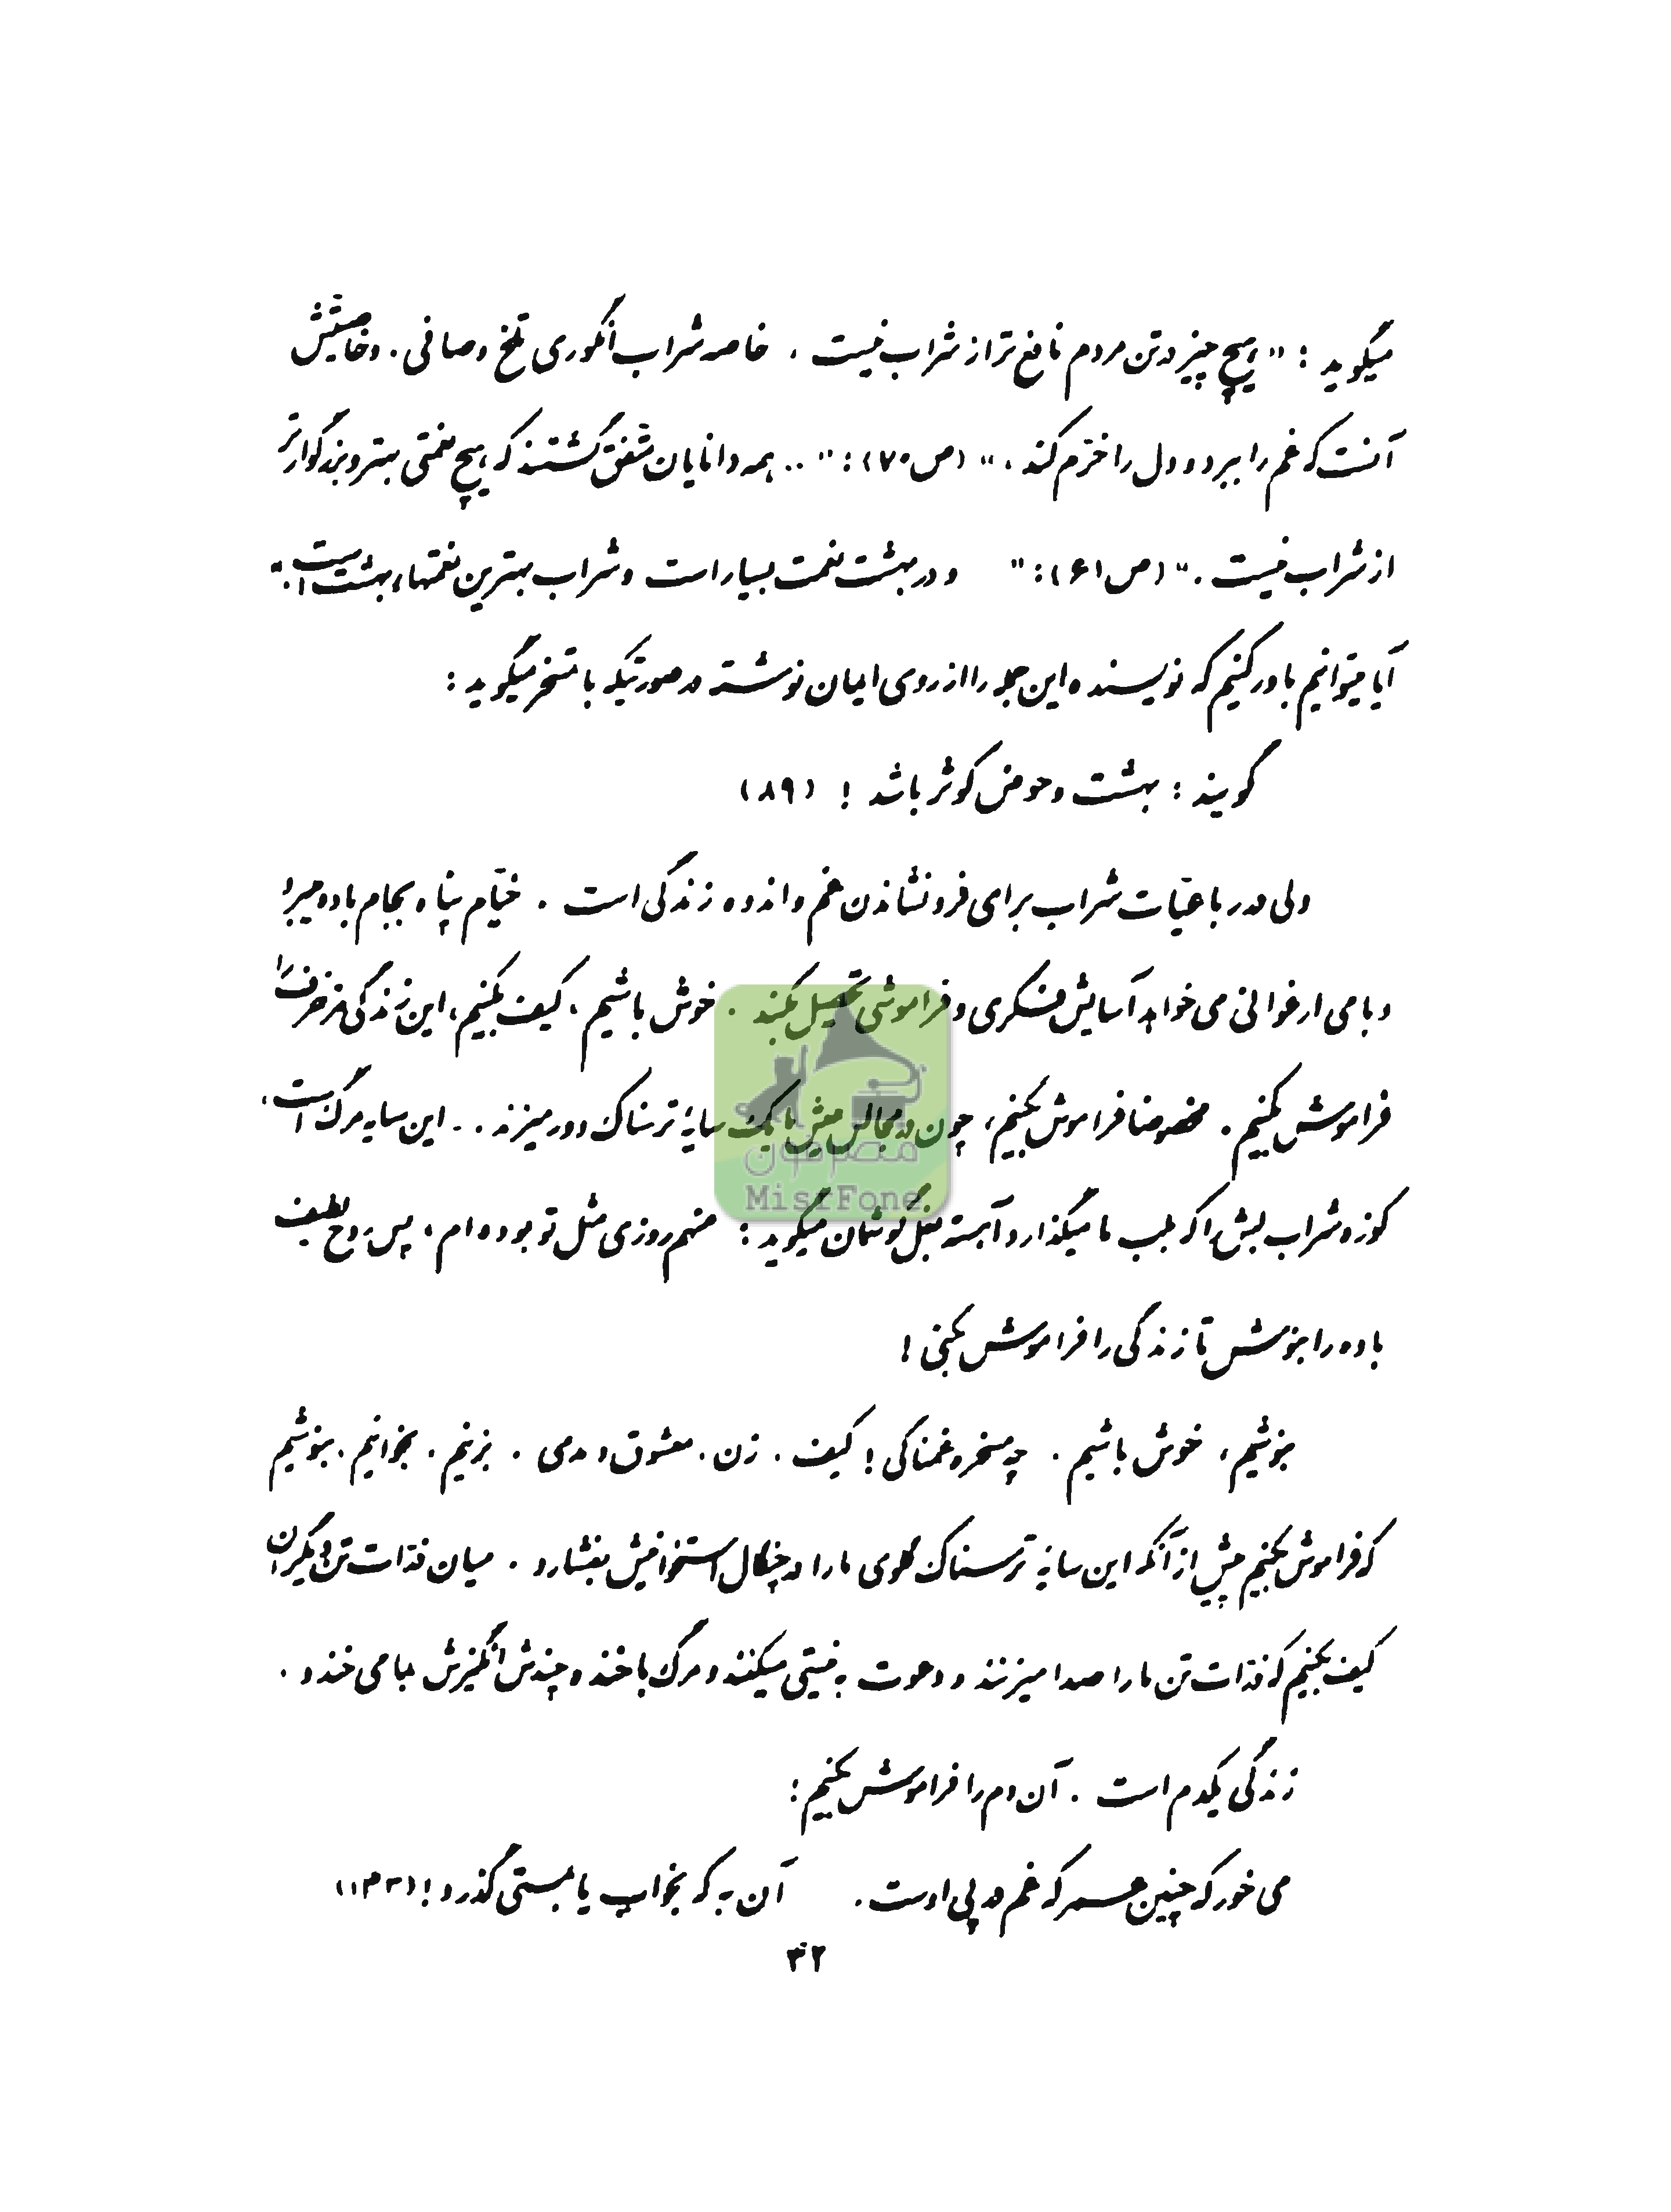 میگوید : « هیچ چیز در تن مردم نافع تر از شراب نیست ، خاصه شراب انگوری تلخ و صافی . و خاصیتش
آنست که غم را ببرد و دل را خرم کند . » (ص ۷۰) : « .. همه دانایان متفق گشتند که هیچ نعمتی بهتر و بزرگوارتر
از شراب نیست . » (ص ۶۱) : « و در بهشت نعمت بسیار است و شراب بهترین نعمتهای بهشت است . »
آیا میتوانیم باور کنیم که نویسنده این جمله را از روی ایمان نوشته در صورتیکه با تمسخر میگوید :
گویند : بهشت و حوض کوثر باشد ! (۸۹)
ولی در رباعیات شراب برای فرونشاندن غم و اندوه زندگی است . خیّام پناه بجام باده میبرد
و با می ارغوانی می خواهد آسایش فکری و فراموشی تحصیل بکند . خوش باشیم ، کیف بکنیم ، این زندگی مزخرف را
فراموش بکنیم . مخصوصا فراموش بکنیم ، چون در مجالس عیش ما یک سایهٔ ترسناک دور میزند .. این سایه مرگ است ،
کوزه شراب لبش را که بلب ما میگذارد آهسته بغل گوشمان میگوید : منهم روزی مثل تو بوده ام ، پس روح لطیف
باده را بنوش تا زندگی را فراموش بکنی !
بنوشیم ، خوش باشیم . چه مسخره غمناکی ! کیف . زن . معشوق دمدمی . بزنیم . بخوانیم . بنوشیم
که فراموش بکنیم پیش از آنکه این سایهٔ ترسناک گلوی ما را در چنگال استخوانیش بفشارد . میان ذرات تن دیگران
کیف بکنیم که ذرات تن ما را صدا میزنند و دعوت به نیستی میکنند و مرگ با خنده چندش انگیزش بما می خندد .
زندگی یکدم است . آن دم را فراموش بکنیم :
می خور که چنین عمر که غم در پی اوست . آن به که بخواب یا بمستی گذرد ! (۱۴۳)
۳۲
مصرفون
MisrFone